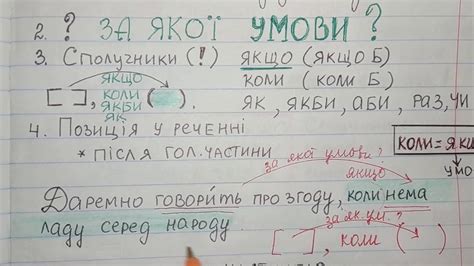 2. ? ЗА ЯКОЇ УМОВИ?
3. Сполучники (!) ЯКЩО (ЯКЩО Б)
КОЛИ (КОЛИ Б)
ЯК, ЯКБИ, АБИ, РАЗ, ЧИ
ЯКЩО
[ ], КОЛИ ( )
ЯКБИ
ЯК
4. Позиція у реченні
* після гол. частини
КОЛИ = ЯКЩ
УМО
за якої умови?
якщо
Даремно говорить про згоду, коли нема
ладу серед народу.
за як. ум.?
[ ], коли ( )